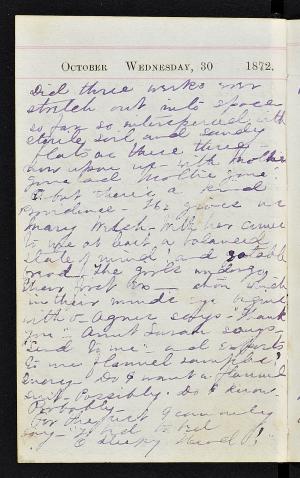 October Wednesday, 30 1872.
Did three weeks ever
stretch out into space
so far so interspersed with
sterile soil and sandy
flats as these three
now upon us - with mother
gone and Mollie gone!
but there's a kind
Providence - He gives us
Mary Welch - Mother came
to me at last, a balanced
state of mind and
mood. The girls undergo
their first
in their minds
with - Agnes says "Thank
you" - Aunt Susan says
"Send to me" and
to me flannel samples!
Query - Do I want a flannel
suit - Possibly. Do I know -
Probably -
For the rest I can only
say - "To bed to bed
Sleepy Head"!